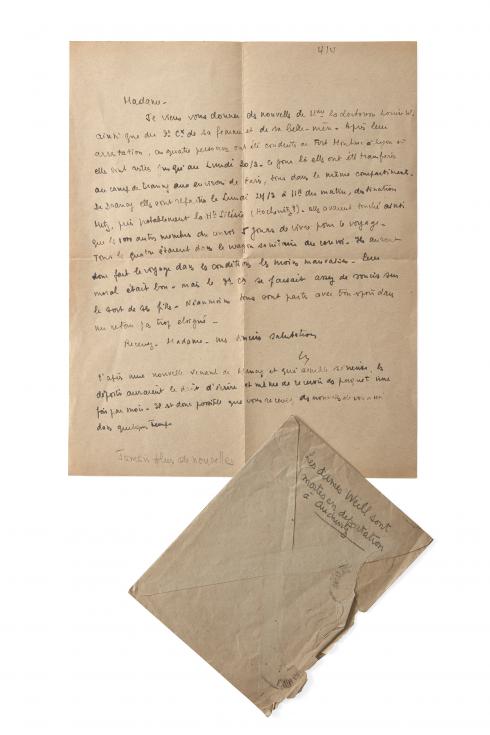 4/V
Madame -
Je viens vous donner des nouvelles de Mme la doctoresse
ainsi que du Dr Cx de sa femme et de sa belle-mère. Après leur
arrestation, ces quatre personnes ont été conduites au Fort Montluc à Lyon où
elles sont restées jusqu'au Lundi 20/3. Ce jour là elles ont été transférées
au camp de Drancy aux environs de Paris, tous dans le même compartiment.
De Drancy elles sont reparties le Lundi 27/3 à 11h du matin, destination
Metz, puis probablement la Hte Silésie (Hochwitz?). elles avaient touché ainsi
que les 1000 autres membres du convoi 5 jours de vivres pour le voyage.
Tous les quatre étaient dans le wagon sanitaire du convoi. Ils auront
donc fait le voyage dans les conditions les moins mauvaises. Leur
moral était bon. mais le Dr Cx se faisait assez de soucis sur
le sort de ses fils. Néanmoins tous sont partis avec bon espoir dans
un retour pas trop éloigné.
Recevez, Madame, mes sincères salutations
D'après une nouvelle venant de Drancy et qui semble sérieuse, les
déportés auraient le droit d'écrire et même de recevoir des paquets une
fois par mois. Il est donc possible que vous receviez des nouvelles
dans quelques temps.
Jamais plus de nouvelles
Les dames Weill sont
mortes en déportation
à Auschwitz